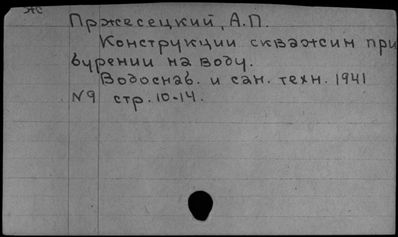 жс
Пржесецкий, А.П.
Конструкции скважин при
бурении на воду.
Водоснаб. и сан. техн. 1941
N9 стр. 10-14.